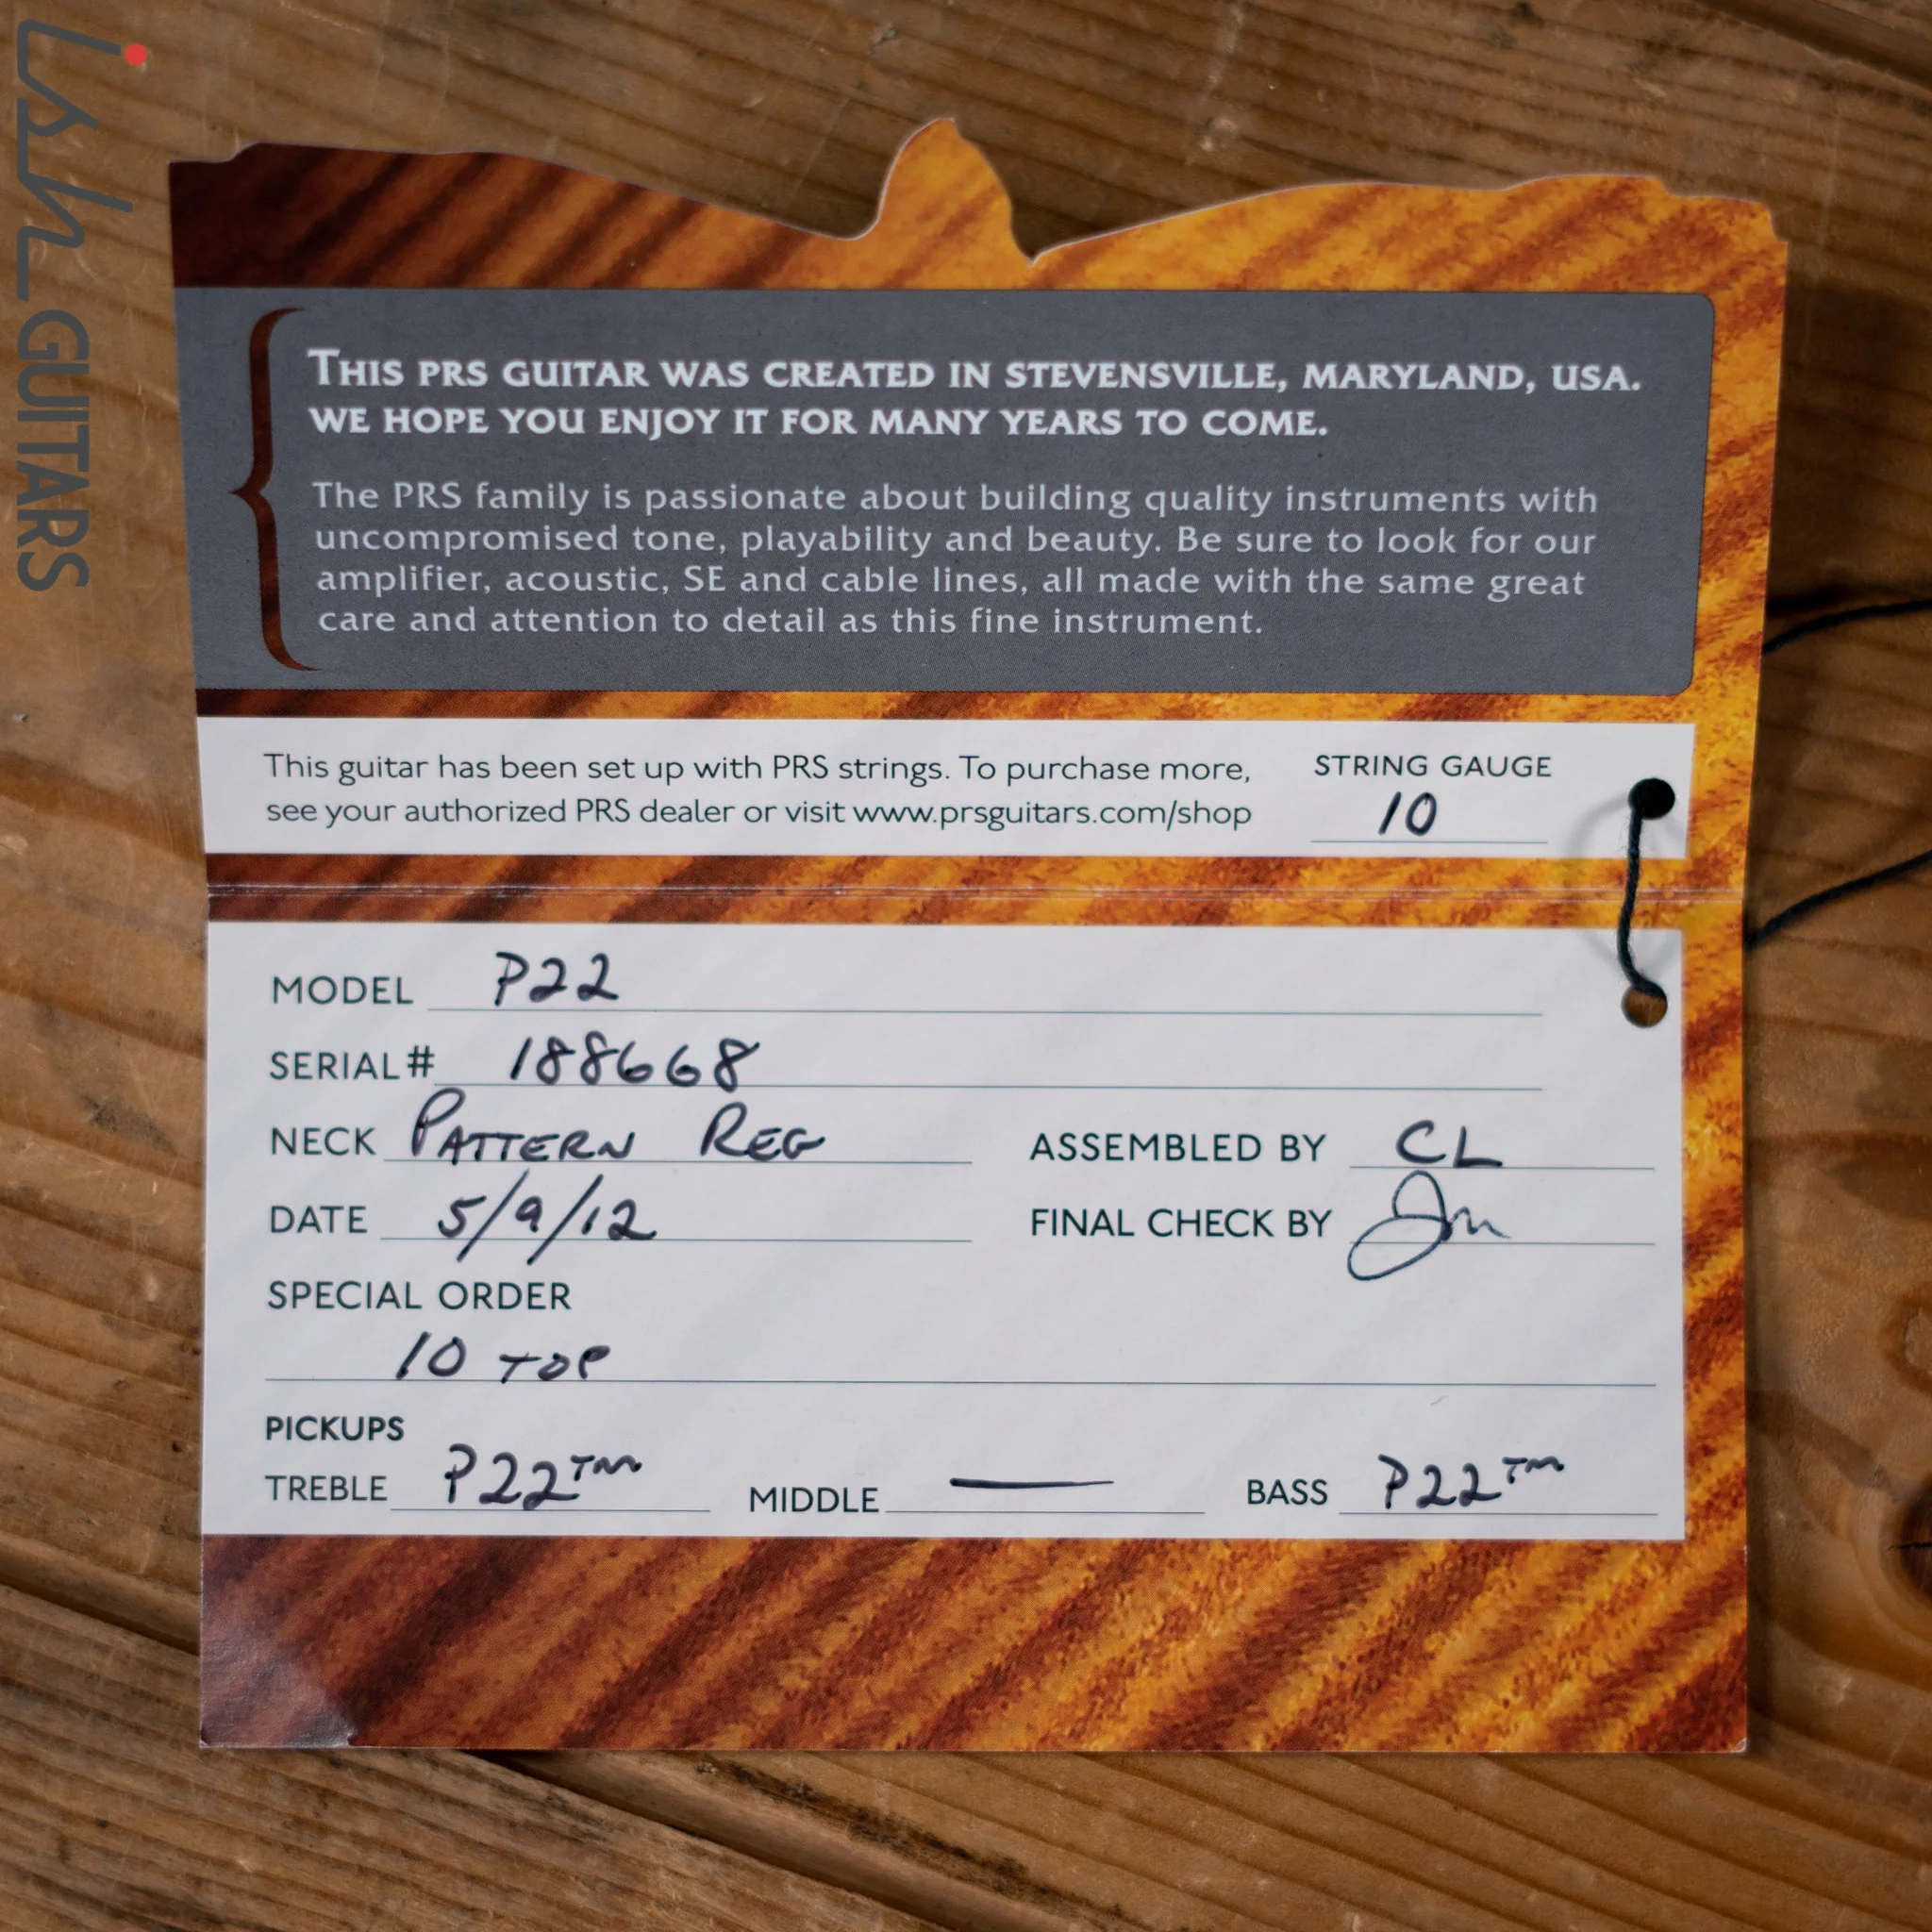 ish GUITARS
THIS PRS GUITAR WAS CREATED IN STEVENSVILLE, MARYLAND, USA.
WE HOPE YOU ENJOY IT FOR MANY YEARS TO COME.
The PRS family is passionate about building quality instruments with
uncompromised tone, playability and beauty. Be sure to look for our
amplifier, acoustic, SE and cable lines, all made with the same great
care and attention to detail as this fine instrument.
This guitar has been set up with PRS strings. To purchase more,
see your authorized PRS dealer or visit www.prsguitars.com/shop
STRING GAUGE
10
MODEL P22
SERIAL# 188668
NECK PATTERN REG ASSEMBLED BY CL
DATE 5/9/12 FINAL CHECK BY
SPECIAL ORDER
10 TOP
PICKUPS
TREBLE P22™ MIDDLE — BASS P22™